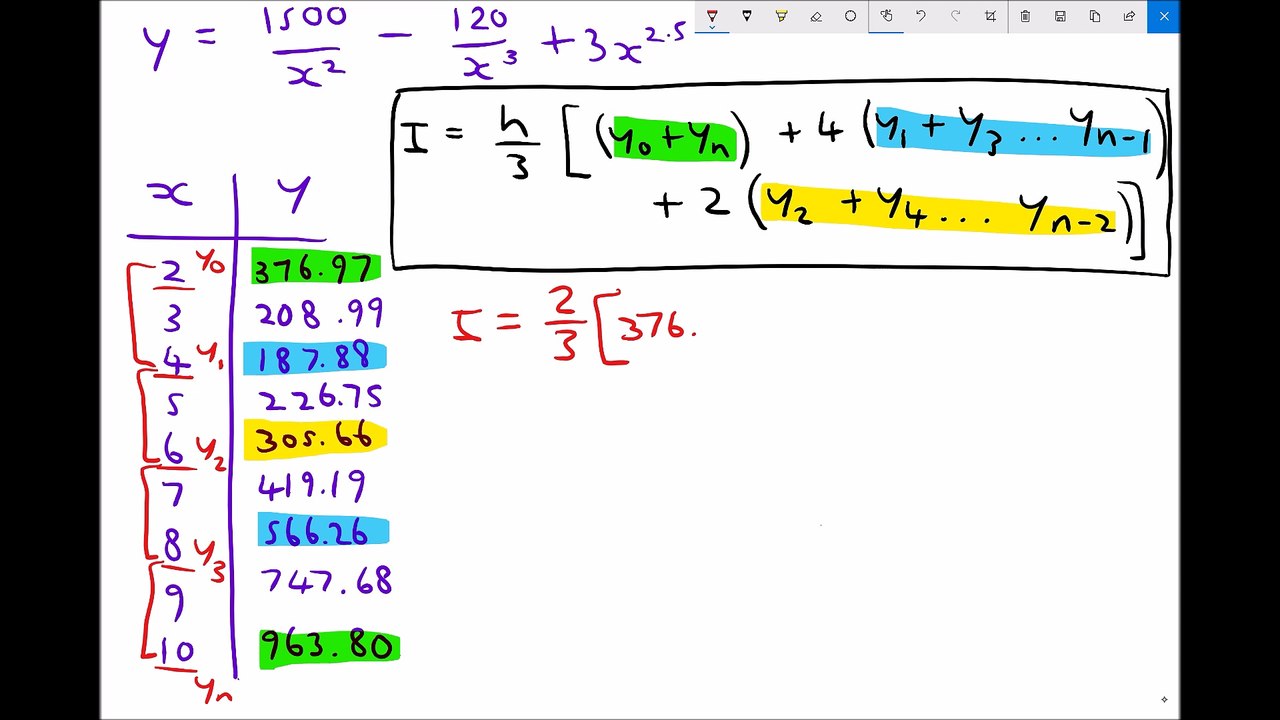 y = 1500/x² − 120/x³ + 3x^2.5
I = h/3 [(y₀ + yₙ) + 4 (y₁ + y₃ ... yₙ₋₁)
+ 2 (y₂ + y₄ ... yₙ₋₂)]
x y
2 y₀ 376.97
3 208.99
4 y₁ 187.88
5 226.75
6 y₂ 305.66
7 419.19
8 y₃ 566.26
9 747.68
10 963.80
yₙ
I = 2/3 [376.